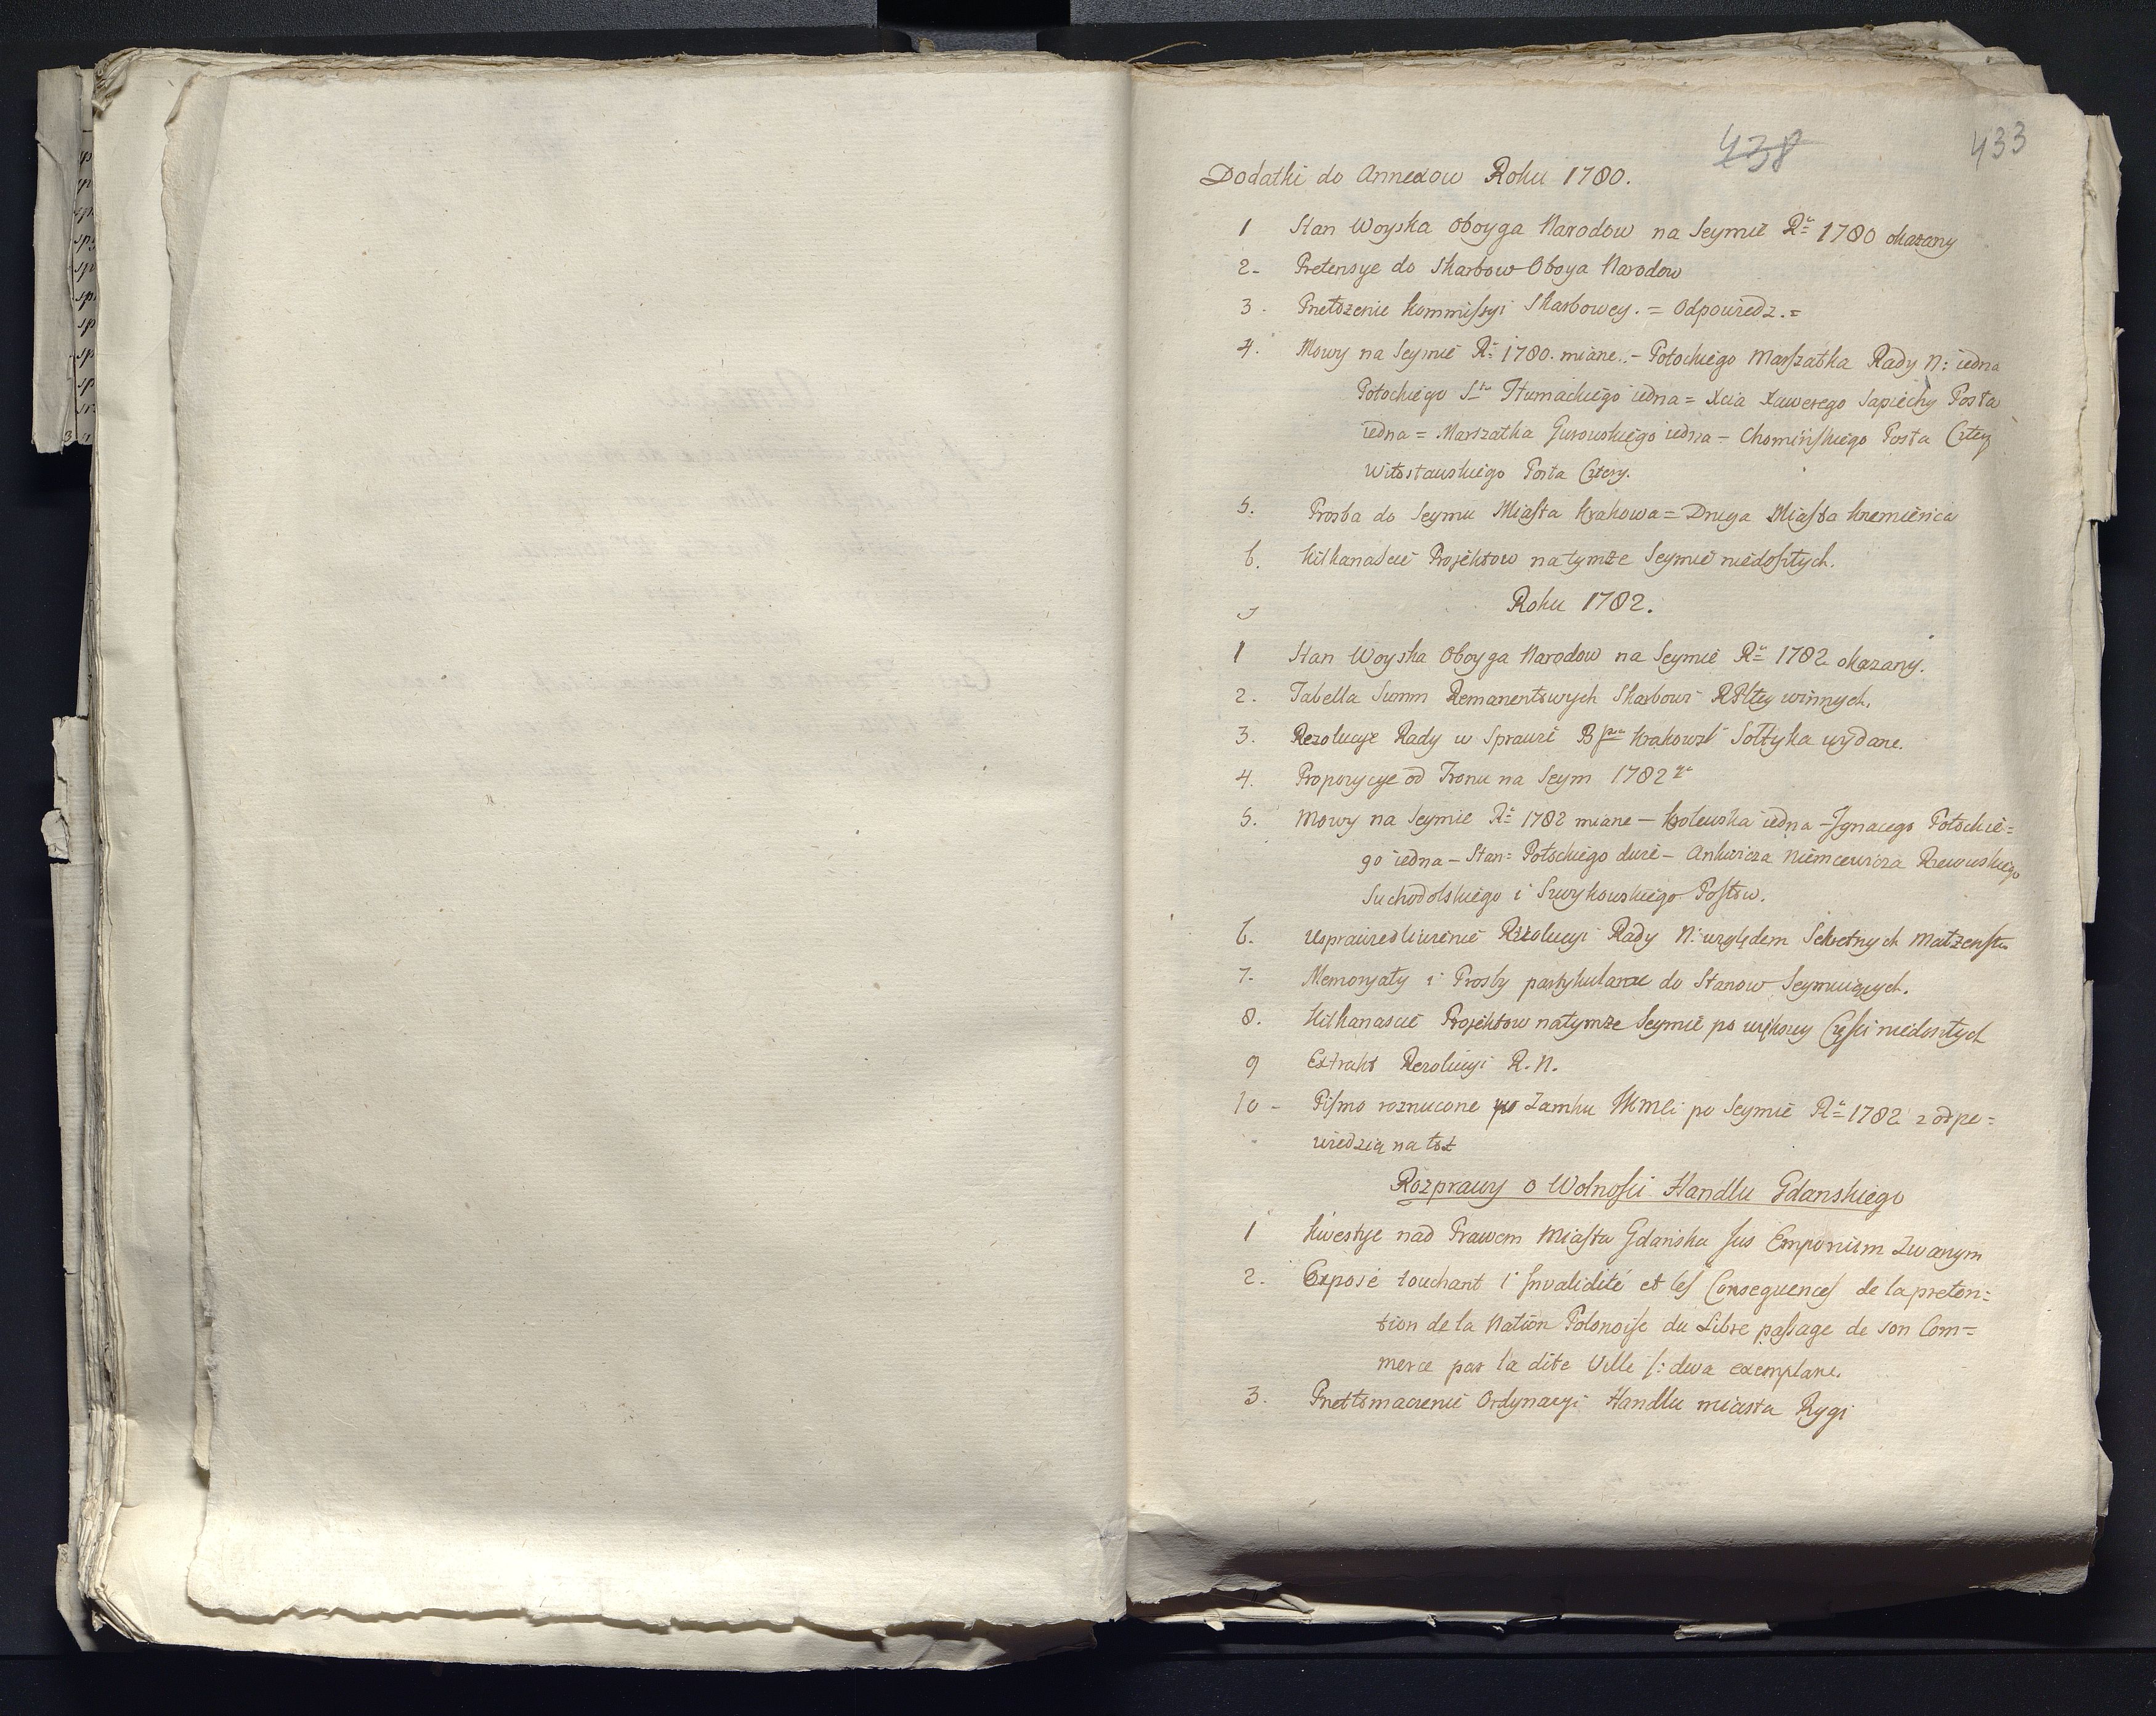 438 433
Dodatki do Annexow Roku 1780.
1 Stan Woyska Oboyga Narodow na Seymie Ru 1780 okazany
2. Pretensye do Skarbow Oboya Narodow
3. Przełożenie Kommissyi Skarbowey. = Odpowiedz. =
4. Mowy na Seymie Ru 1780. miane. - Potockiego Marszałka Rady N: iedna
Potockiego Sty Tłumackiego iedna = Xcia Xawerego Sapiehy Posła
iedna = Marszałka Gurowskiego iedna - Chomińskiego Posła Cztery
Witosławskiego Posła Cztery.
5. Prosba do Seymu Miasta Krakowa = Druga Miasta Krzemieńca
6. Kilkanascie Projektow na tymże Seymie niedoszłych.
Roku 1782.
1 Stan Woyska Oboyga Narodow na Seymie Ru 1782 okazany.
2. Tabella Summ Remanentowych Skarbowi RPltey winnych.
3. Rezolucye Rady w Sprawie Bpa Krakowsk Sołtyka wydane.
4. Propozycye od Tronu na Seym 1782
5. Mowy na Seymie Ru 1782 miane - Krolewska iedna - Ignacego Potockie=
go iedna - Stan: Potockiego dwie - Ankwicza Niemcewicza Rzewuskiego
Suchodolskiego i Swykowskiego Posłow.
6. Usprawiedliwienie Rezolucyi Rady N: względem Sekretnych Małżenstw
7. Memoryały i Prosby partykularne do Stanow Seymuiących.
8. Kilkanascie Projektow na tymże Seymie po większey Części niedoszłych
9 Extrakt Rezolucyi R. N.
10 - Pismo roznucone po Zamku JKMci po Seymie Ru 1782 z odpo=
wiedzią na toż
Rozprawy o Wolności Handlu Gdanskiego
1 Kwestye nad Prawem Miasta Gdańska Jus Emporium Zwanym
2. Exposé touchant l'Invalidité et les Consequences de la preten=
tion de la Nation Polonoise du Libre passage de son Com=
merce par la dite Ville /: dwa exemplarze.
3. Przetłomaczenie Ordynacyi Handlu miasta Rygi